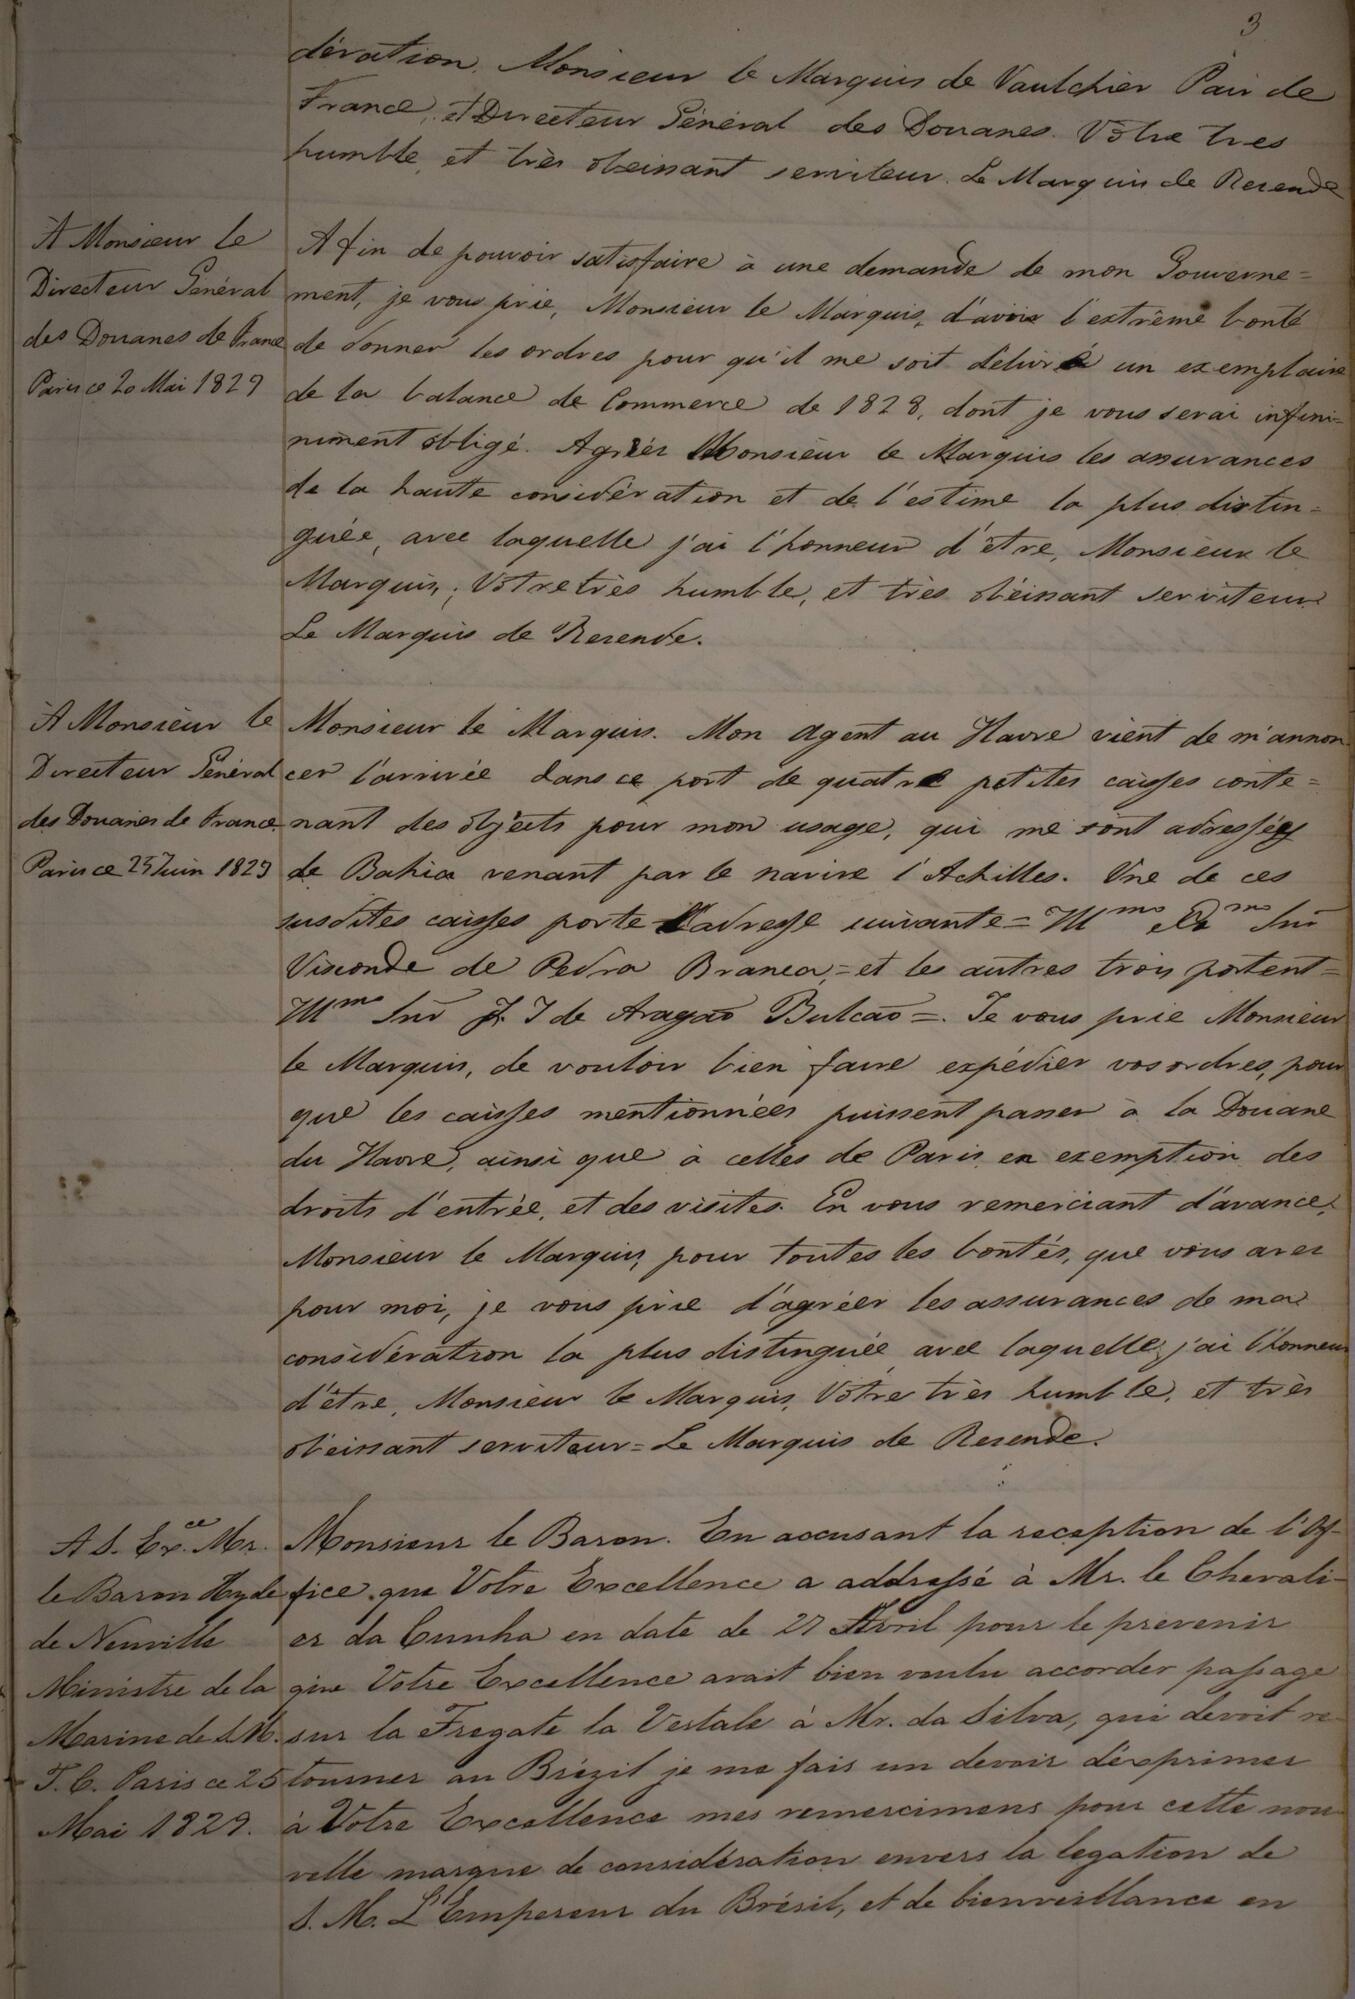 3
dération. Monsieur le Marquis de Vaulchier Pair de
France, et Directeur Général des Douanes. Vôtre tres
humble, et très obeissant serviteur. Le Marquis de Resende
À Monsieur le
Directeur Général
des Douanes de France
Paris ce 20 Mai 1829
A fin de pouvoir satisfaire à une demande de mon Gouverne=
ment, je vous prie, Monsieur le Marquis, d'avoir l'extrême bonté
de donner les ordres pour qu'il me soit délivré un exemplaire
de la balance de Commerce de 1828, dont je vous serai infini=
niment obligé. Agréez Monsieur le Marquis les assurances
de la haute considération et de l'estime la plus distin=
guée, avec laquelle j'ai l'honneur d'être, Monsieur le
Marquis, Vôtre très humble, et très obéissant serviteur
Le Marquis de Resende.
À Monsieur le
Directeur Général
des Douanes de France.
Paris ce 25 Juin 1829
Monsieur le Marquis. Mon Agent au Havre vient de m'annon
cer l'arrivée dans ce port de quatre petites caisses conte=
nant des objets pour mon usage, qui me sont adressées
de Bahia venant par le navire l'Achilles. Une de ces
susdites caisses porte l'adresse suivante = Illmo Exmo Snr
Visconde de Pedra Branca = et les autres trois portent =
Illmo Snr J. J de Aragaõ Bulcaõ =. Je vous prie Monsieur
le Marquis, de vouloir bien faire expédier vos ordres, pour
que les caisses mentionnées puissent passer à la Douane
du Havre, ainsi que à celles de Paris en exemption des
droits d'entrée, et des visites. En vous remerciant d'avance,
Monsieur le Marquis, pour toutes les bontés, que vous avez
pour moi, je vous prie d'agréer les assurances de ma
considération la plus distinguée avec laquelle j'ai l'honneur
d'être, Monsieur le Marquis, Vôtre très humble, et très
obeissant serviteur = Le Marquis de Resende.
A S. Exce. Mr.
le Baron Hyde
de Neuville
Ministre de la
Marine de S. M.
T. C. Paris ce 25
Mai 1829.
Monsieur le Baron. En accusant la reception de l'Of-
fice que Votre Excellence a addressé à Mr. le Chevali-
er da Cunha en date de 27 Avril pour le prevenir
que Votre Excellence avait bien voulu accorder passage
sur la Fregate la Vestale à Mr. da Silva, qui devoit re-
tourner au Brézil je me fais un devoir d'exprimer
à Votre Excellence mes remercimens pour cette nou-
velle marque de considération envers la legation de
S. M. L'Empereur du Brésil, et de bienveillance en